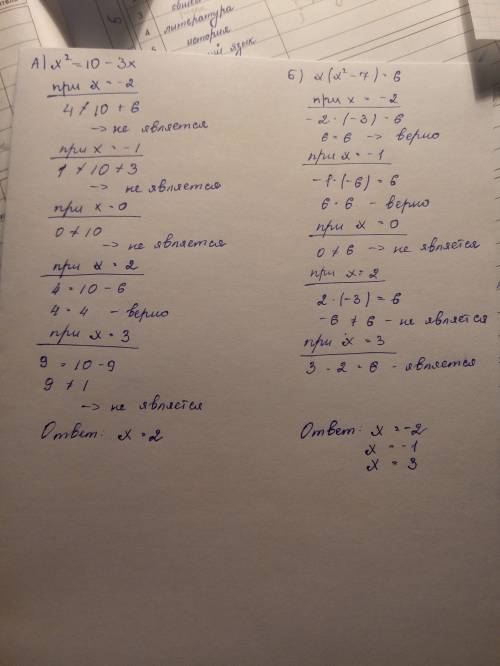 литература
история
язык
А) x² = 10 - 3x
при x = -2
4 ≠ 10 + 6
-> не является
при x = -1
1 ≠ 10 + 3
-> не является
при x = 0
0 ≠ 10
-> не является
при x = 2
4 = 10 - 6
4 = 4 - верно
при x = 3
9 = 10 - 9
9 ≠ 1
-> не является
Ответ: x = 2
Б) x(x² - 7) = 6
при x = -2
-2 · (-3) = 6
6 = 6 -> верно
при x = -1
-1 · (-6) = 6
6 = 6 - верно
при x = 0
0 ≠ 6 -> не является
при x = 2
2 · (-3) = 6
-6 ≠ 6 - не является
при x = 3
3 · 2 = 6 - является
Ответ: x = -2
x = -1
x = 3